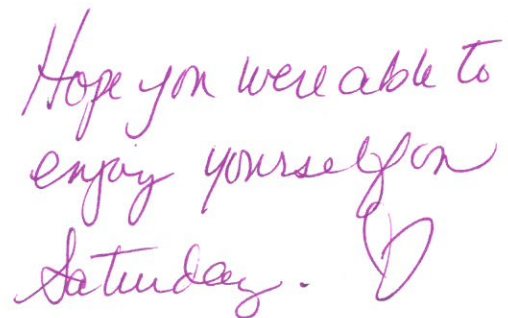 Hope you were able to
enjoy yourself on
Saturday. ♡